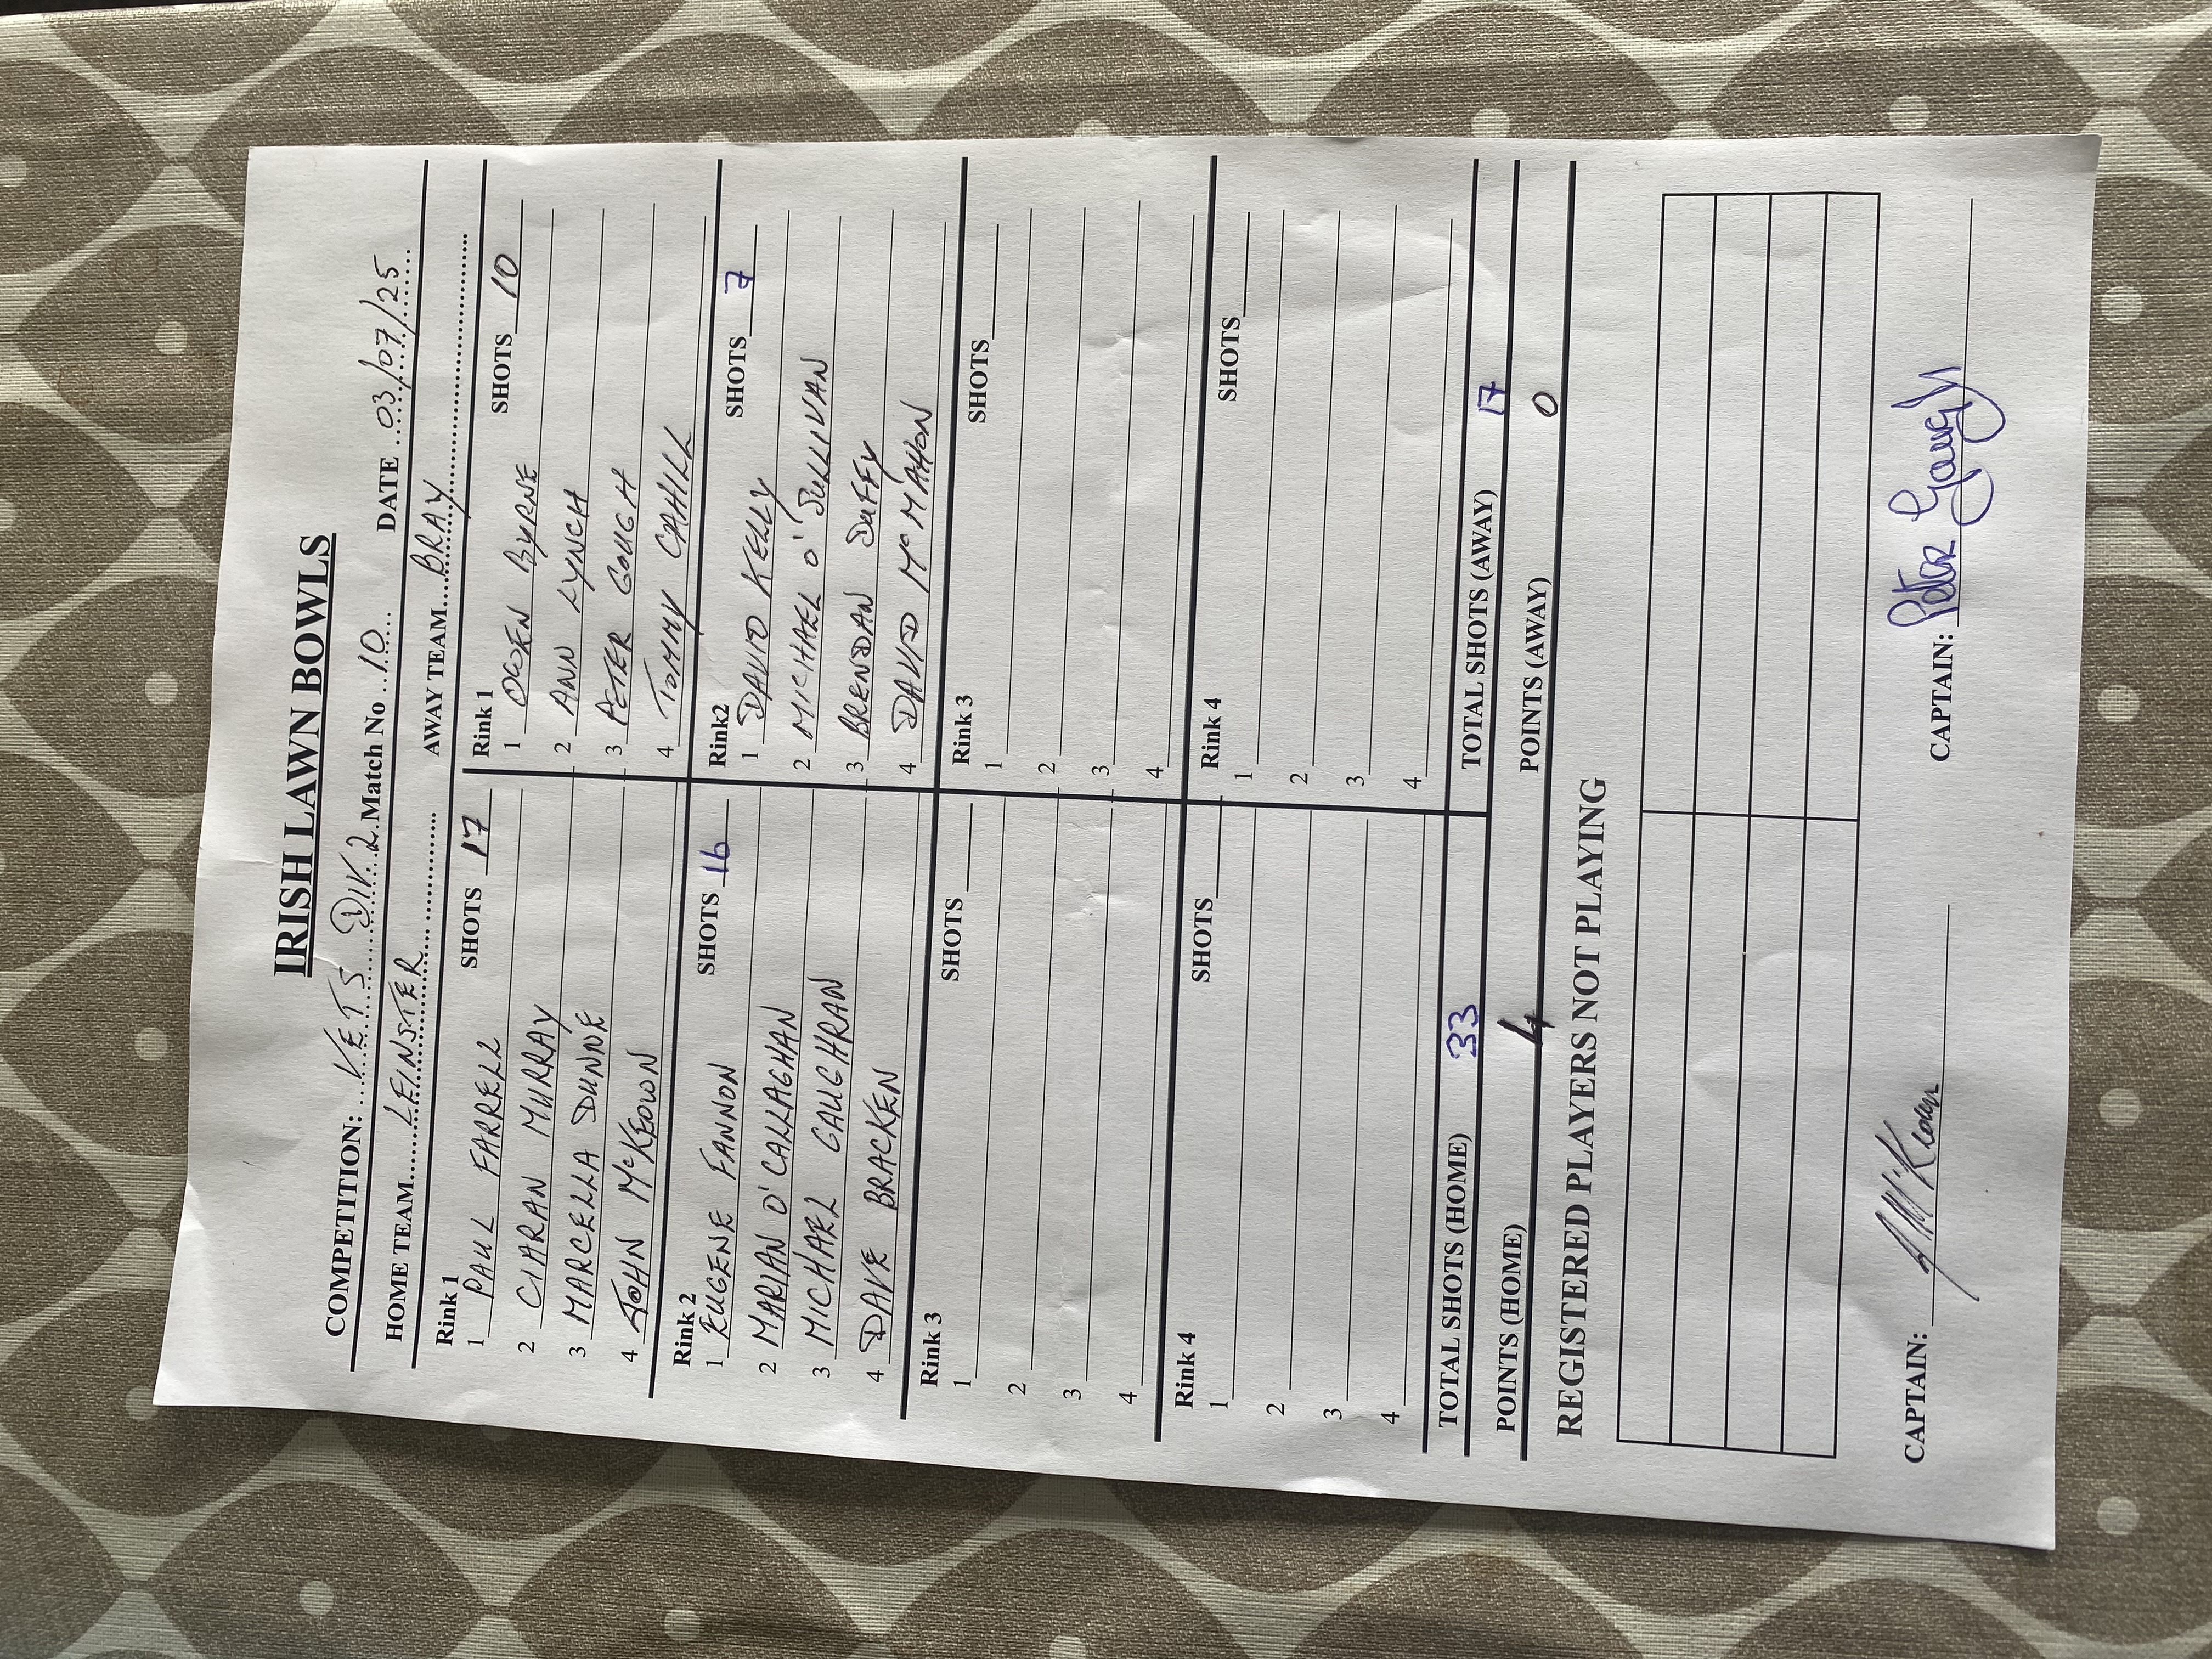 IRISH LAWN BOWLS
COMPETITION: VETS DIV. 2 Match No 10 DATE 03/07/25
HOME TEAM LEINSTER AWAY TEAM BRAY
Rink 1 SHOTS 17
1 PAUL FARRELL
2 CIARAN MURRAY
3 MARCELLA DUNNE
4 JOHN McKEOWN
Rink 1 SHOTS 10
1 OWEN BYRNE
2 ANN LYNCH
3 PETER GOUGH
4 TOMMY CAHILL
Rink 2 SHOTS 16
1 EUGENE FANNON
2 MARIAN O'CALLAGHAN
3 MICHAEL CAUGHRAN
4 DAVE BRACKEN
Rink2 SHOTS 7
1 DAVID KELLY
2 MICHAEL O'SULLIVAN
3 BRENDAN DUFFY
4 DAVID McMAHON
Rink 3 SHOTS
1
2
3
4
Rink 3 SHOTS
1
2
3
4
Rink 4 SHOTS
1
2
3
4
Rink 4 SHOTS
1
2
3
4
TOTAL SHOTS (HOME) 33 TOTAL SHOTS (AWAY) 17
POINTS (HOME) 4 POINTS (AWAY) 0
REGISTERED PLAYERS NOT PLAYING
CAPTAIN: McKeown CAPTAIN: Peter Gough